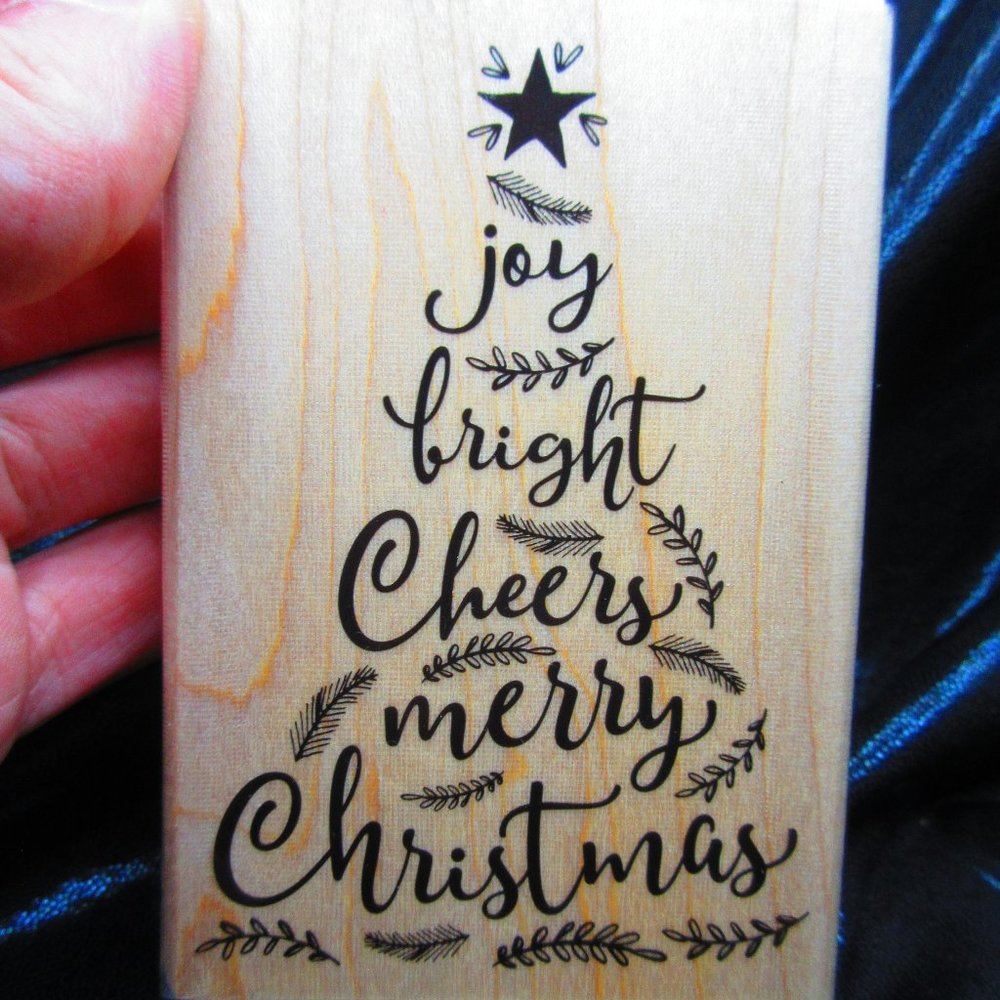 joy
bright
Cheers
merry
Christmas